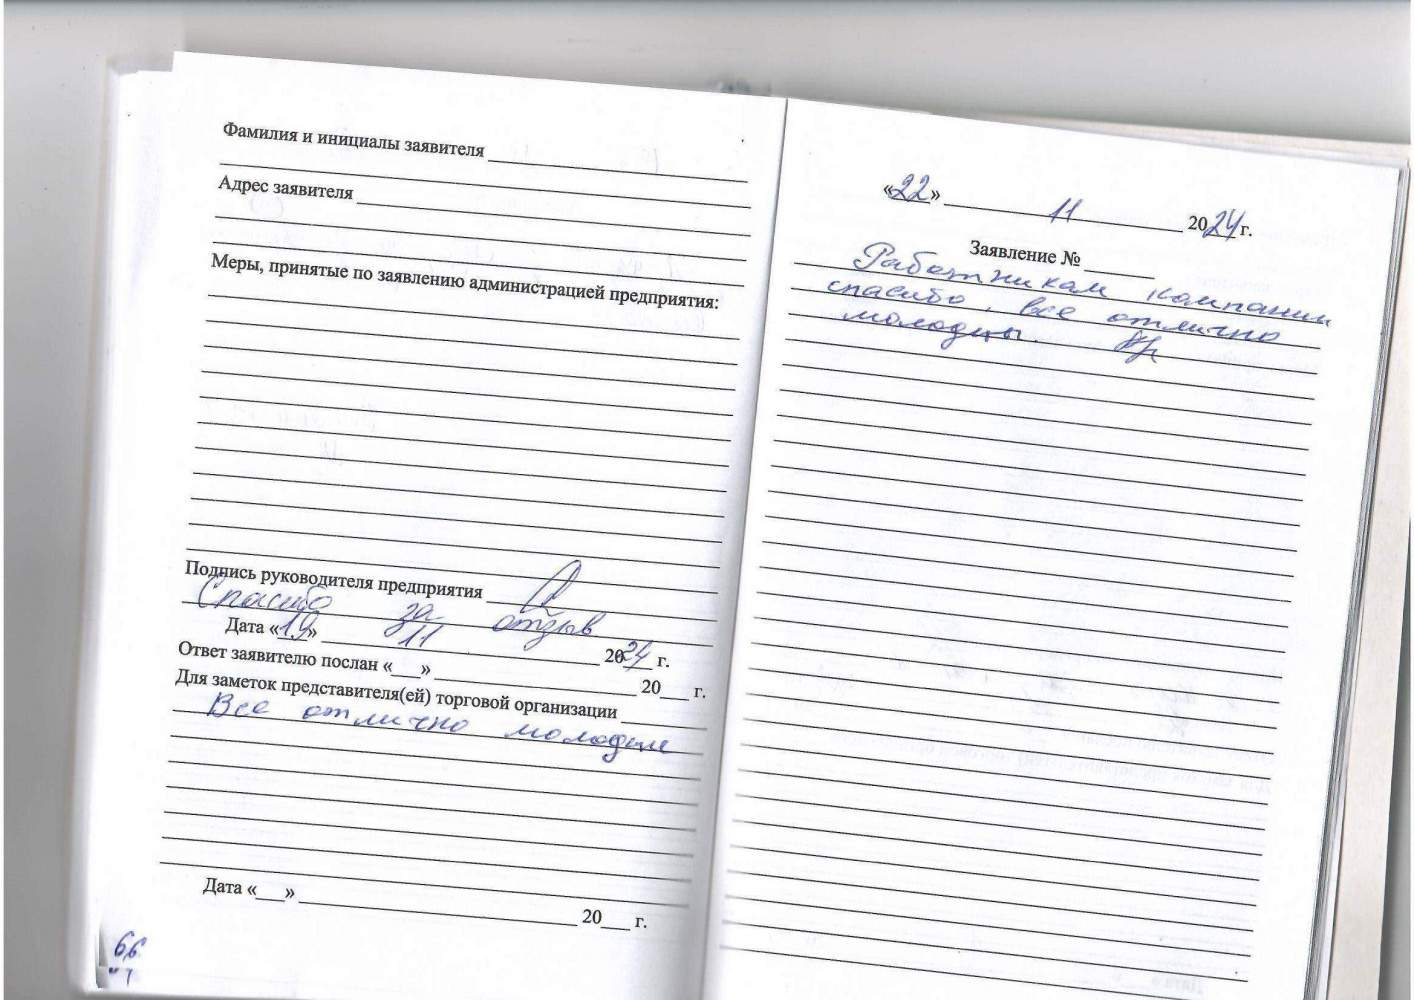 Фамилия и инициалы заявителя
Адрес заявителя
Меры, принятые по заявлению администрацией предприятия:
Подпись руководителя предприятия
Спасибо за отзыв
Дата «19» 11 2024 г.
Ответ заявителю послан «___» 20___ г.
Для заметок представителя(ей) торговой организации
Все отлично молодцы
Дата «___» 20___ г.
66
«22» 11 2024 г.
Заявление №
Работникам компании
спасибо, все отлично
молодцы.